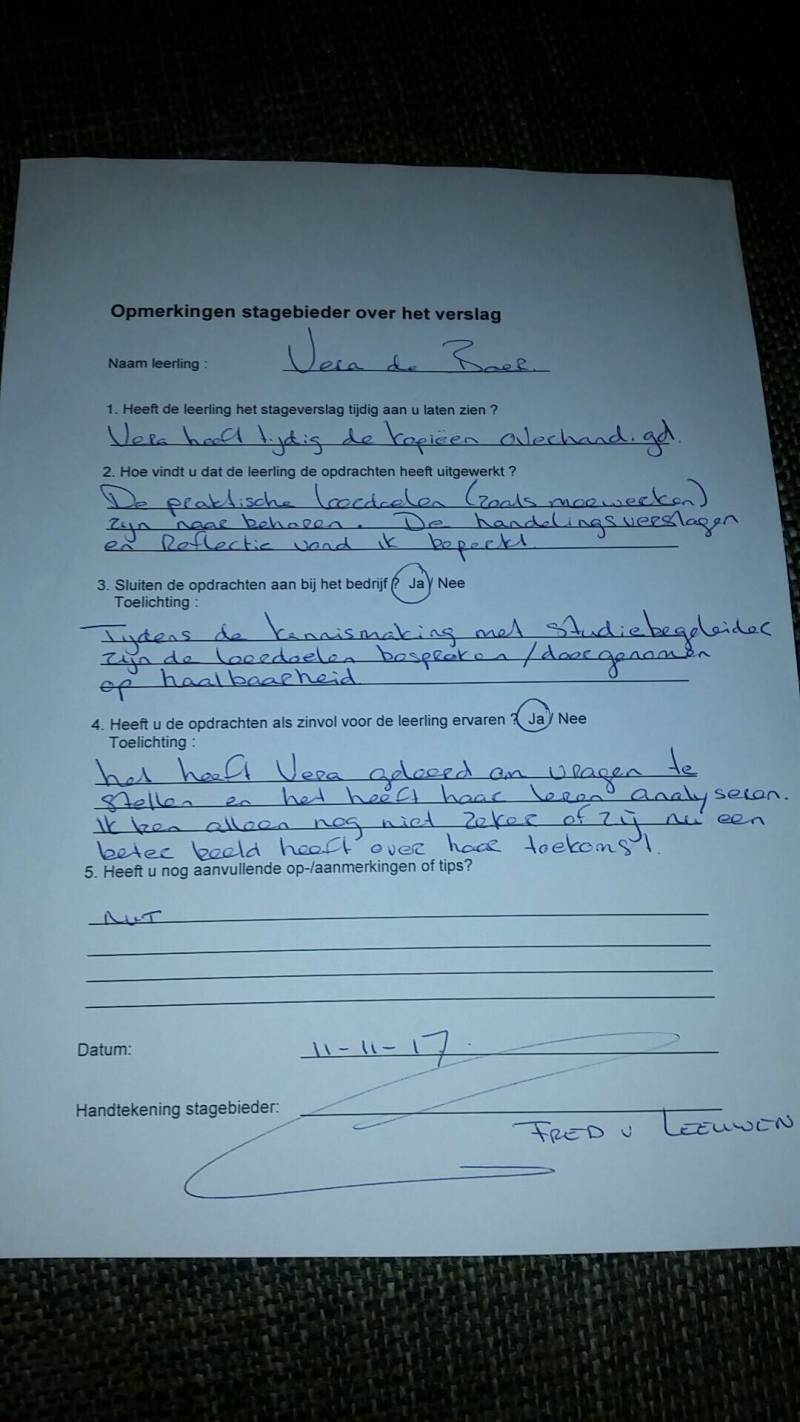 Opmerkingen stagebieder over het verslag
Naam leerling : Vera de Boer.
1. Heeft de leerling het stageverslag tijdig aan u laten zien ?
Vera heeft tijdig de kopieën overhandigd.
2. Hoe vindt u dat de leerling de opdrachten heeft uitgewerkt ?
De praktische leerdoelen (zoals meewerken)
zijn naar behoren. De handelingsverslagen
en Reflectie vond ik beperkt.
3. Sluiten de opdrachten aan bij het bedrijf ? Ja / Nee
Toelichting :
Tijdens de kennismaking met studiebegeleider
zijn de leerdoelen besproken / doorgenomen
op haalbaarheid
4. Heeft u de opdrachten als zinvol voor de leerling ervaren ? Ja / Nee
Toelichting :
het heeft Vera geleerd om vragen te
stellen en het heeft haar leren analyseren.
Ik ben alleen nog niet zeker of zij nu een
beter beeld heeft over haar toekomst.
5. Heeft u nog aanvullende op-/aanmerkingen of tips?
Datum: 11-11-17.
Handtekening stagebieder:
FRED v LEEUWEN